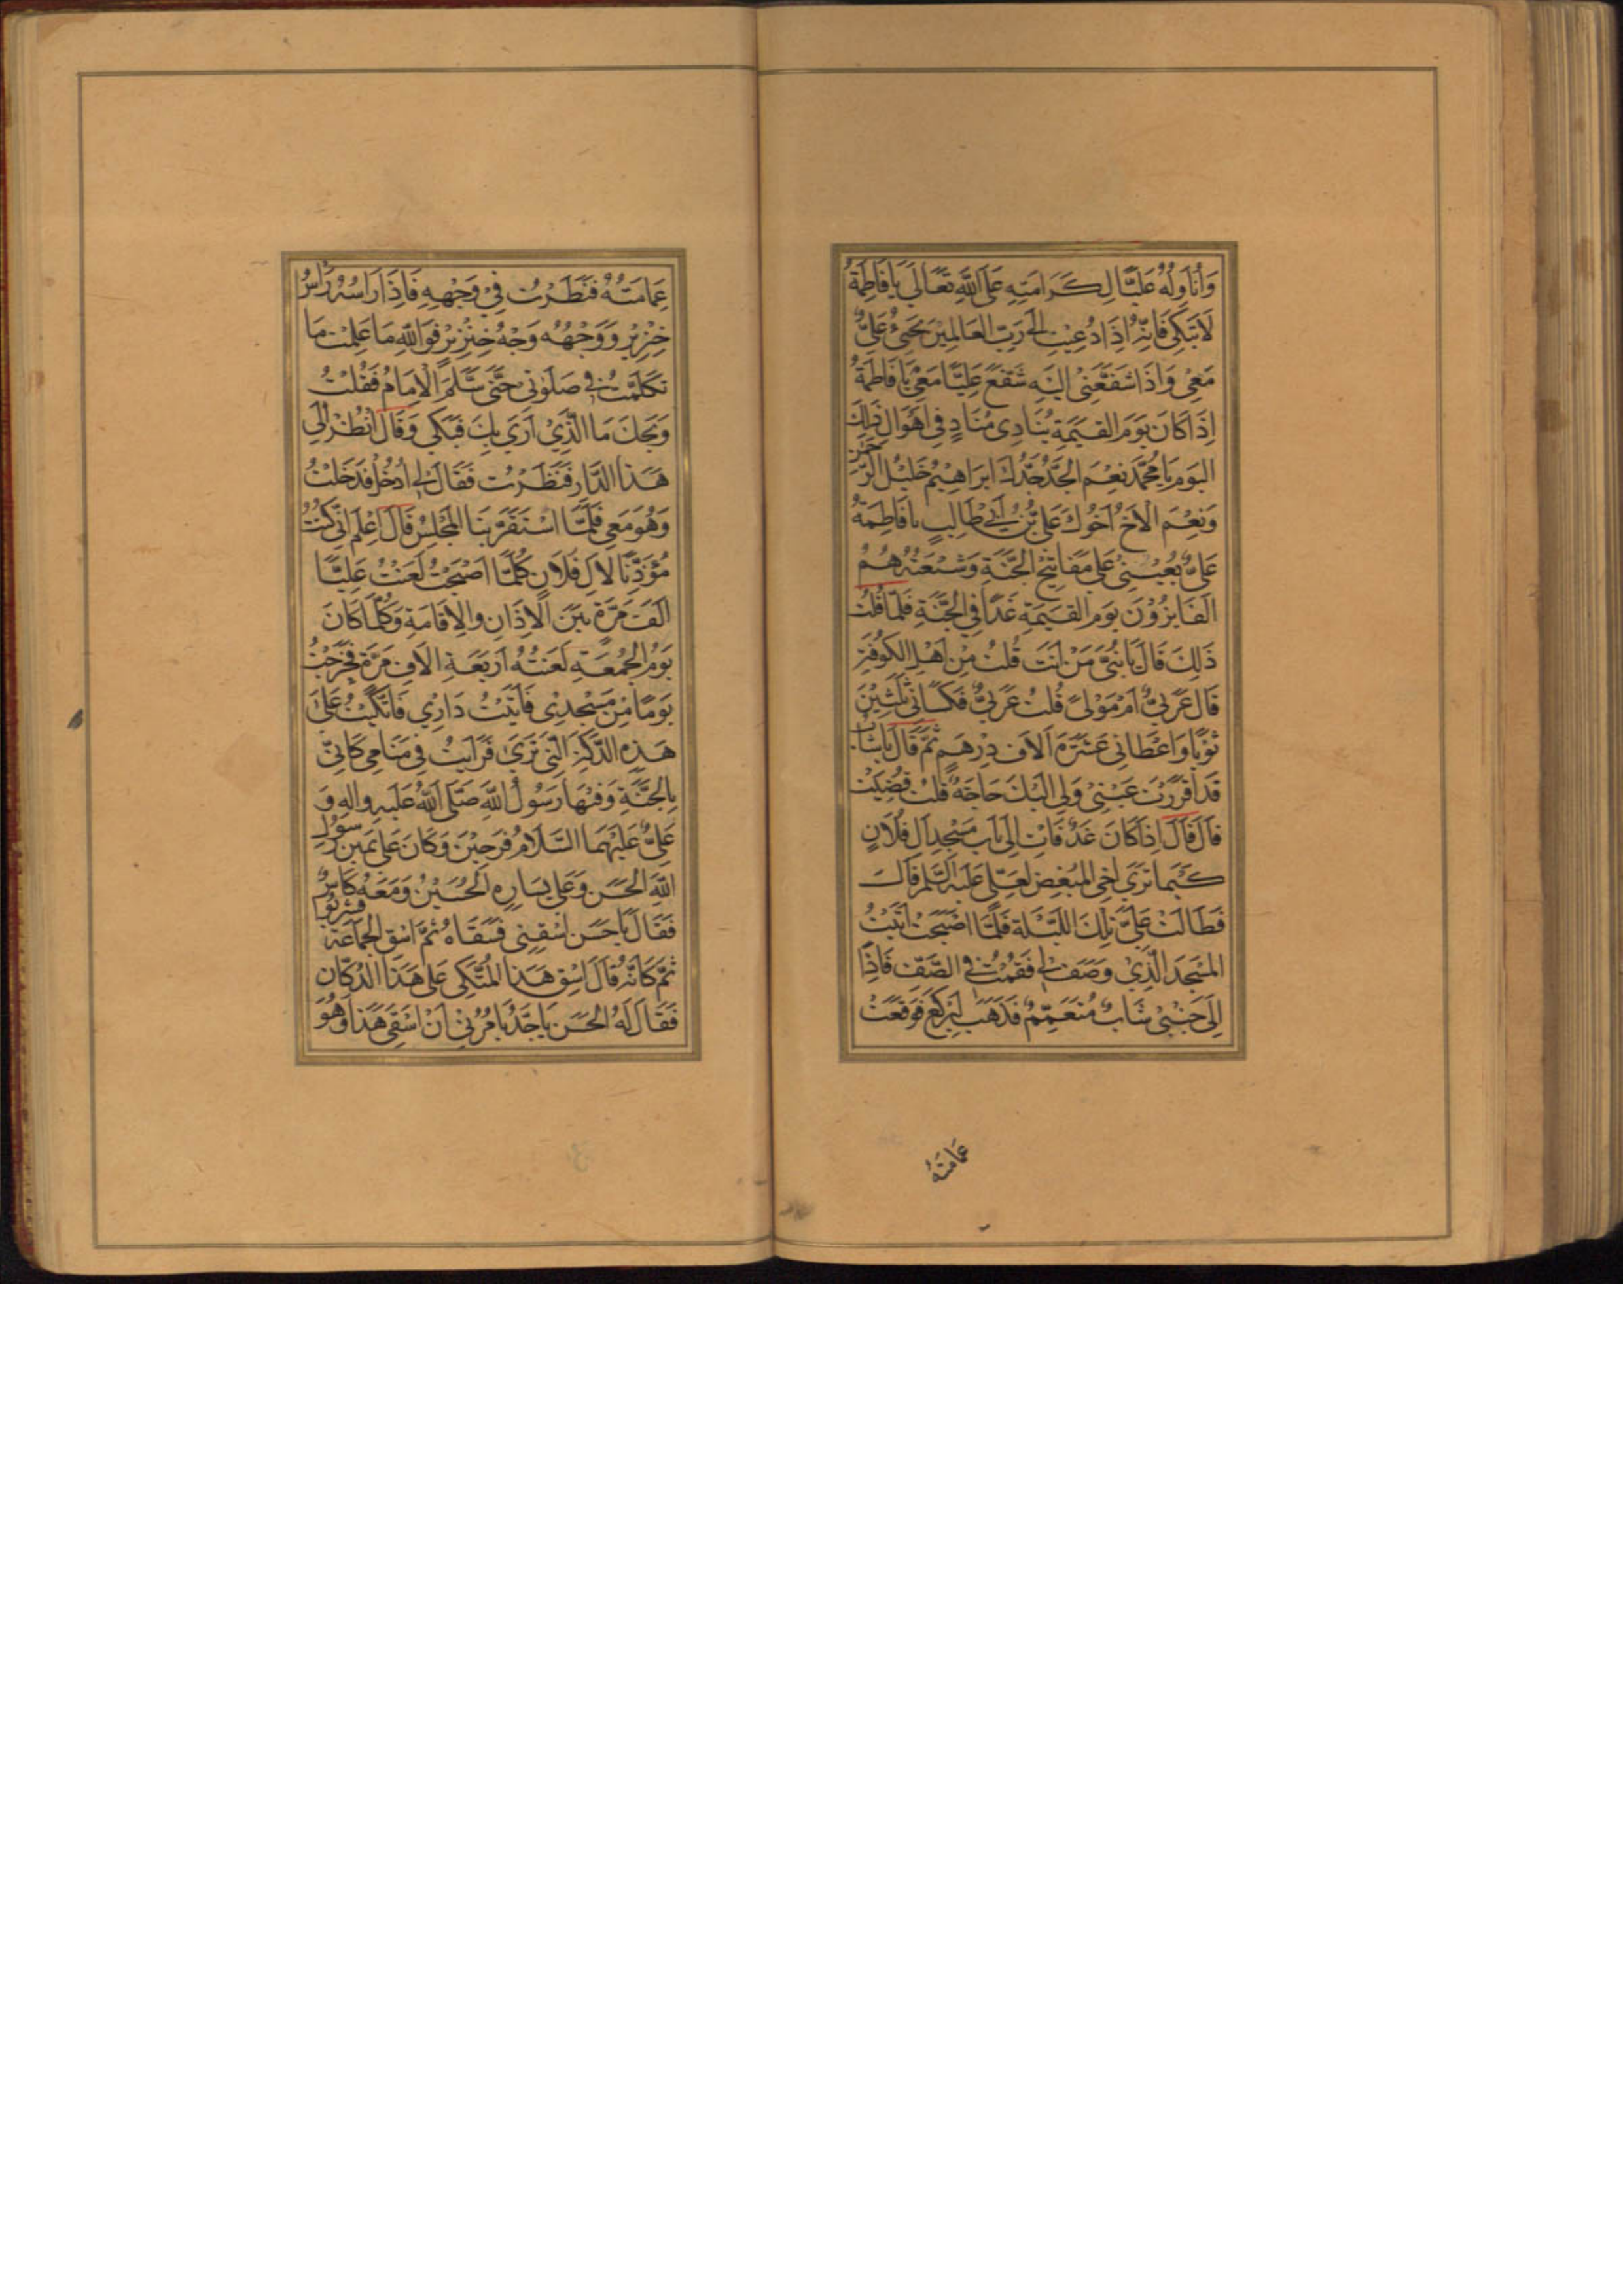 وَاُنَاوِلُهُ عَلِيًّا لِكَرَامَتِهِ عَلَى اللّٰهِ تَعَالَى يَا فَاطِمَةُ
لَا تَبْكِي فَاِنِّي اِذَا دُعِيتُ اِلٰى رَبِّ الْعَالَمِيْنَ يَجِيْءُ عَلِيٌّ
مَعِيْ وَاِذَا شَفَّعَنِيْ اِلَيْهِ شَفَّعَ عَلِيًّا مَعِيْ يَا فَاطِمَةُ
اِذَا كَانَ يَوْمَ الْقِيٰمَةِ يُنَادِى مُنَادٍ فِى اَهْوَالِ ذٰلِكَ
الْيَوْمِ يَا مُحَمَّدُ نِعْمَ الْجَدُّ جَدُّكَ اِبْرَاهِيْمُ خَلِيْلُ الرَّحْمٰنِ
وَنِعْمَ الْاَخُ اَخُوْكَ عَلِيُّ بْنُ اَبِي طَالِبٍ يَا فَاطِمَةُ
عَلِيٌّ يُعِيْنُنِيْ عَلٰى مَفَاتِيْحِ الْجَنَّةِ وَشِيْعَتُهُ هُمُ
الْفَايِزُوْنَ يَوْمَ الْقِيٰمَةِ غَدًا فِي الْجَنَّةِ فَلَمَّا قُلْتُ
ذٰلِكَ قَالَ يَا بُنَيَّ مَنْ اَنْتَ قُلْتُ مِنْ اَهْلِ الْكُوْفَةِ
قَالَ عَرَبِيٌّ اَمْ مَوْلًى قُلْتُ عَرَبِيٌّ فَكَسَانِي ثَلٰثِيْنَ
ثَوْبًا وَاَعْطَانِي عَشَرَةَ اَلَافِ دِرْهَمٍ ثُمَّ قَالَ يَا شَابُّ
قَدْ اَقْرَرْتَ عَيْنِيْ وَلِي اِلَيْكَ حَاجَةٌ قُلْتُ قُضِيَتْ
قَالَ قَالَ اِذَا كَانَ غَدٌ فَأْتِ اِلٰى بَابِ مَسْجِدِ اٰلِ فُلَانٍ
كَيْمَا تَرَي اَخِي الْمُبْغِضَ لِعَلِيٍّ عَلَيْهِ السَّلٰمُ قَالَ
فَطَالَتْ عَلَيَّ تِلْكَ اللَّيْلَةُ فَلَمَّا اَصْبَحْتُ اَتَيْتُ
الْمَسْجِدَ الَّذِيْ وَصَفَ لِي فَقُمْتُ فِي الصَّفِّ فَاِذَا
اِلَى جَنْبِيْ شَابٌّ مُتَعَمِّمٌ فَذَهَبَ لِيَرْكَعَ فَوَقَعَتْ
عِمَامَتُهُ
عِمَامَتُهُ فَنَظَرْتُ فِيْ وَجْهِهِ فَاِذَا رَاسُهُ رَاسُ
خِنْزِيْرٍ وَوَجْهُهُ وَجْهُ خِنْزِيْرٍ فَوَاللّٰهِ مَا عَلِمْتُ مَا
تَكَلَّمْتُ فِي صَلٰوتِي حَتّٰى سَلَّمَ الْاِمَامُ فَقُلْتُ
وَيْحَكَ مَا الَّذِيْ اَرَي بِكَ فَبَكَي وَقَالَ اُنْظُرْ اِلَي
هٰذَا الدَّارِ فَنَظَرْتُ فَقَالَ لِي اُدْخُلْ فَدَخَلْتُ
وَهُوَ مَعِي فَلَمَّا اسْتَقَرَّ بِنَا الْمَجْلِسُ قَالَ اِعْلَمْ اَنِّي كُنْتُ
مُؤَذِّنًا لِاٰلِ فُلَانٍ كُلَّمَا اَصْبَحْتُ لَعَنْتُ عَلِيًّا
اَلْفَ مَرَّةٍ بَيْنَ الْاَذَانِ وَالْاِقَامَةِ وَكُلَّمَا كَانَ
يَوْمُ الْجُمُعَةِ لَعَنْتُهُ اَرْبَعَةَ اٰلَافِ مَرَّةٍ فَخَرَجْتُ
يَوْمًا مِنْ مَسْجِدِي فَاَتَيْتُ دَارِي فَاتَّكَيْتُ عَلٰى
هٰذِهِ الدَّكَّةِ الَّتِي تَرٰى فَرَاَيْتُ فِي مَنَامِي كَاَنِّي
بِالْجَنَّةِ وَفِيْهَا رَسُوْلُ اللّٰهِ صَلَّى اللّٰهُ عَلَيْهِ وَاٰلِهِ وَ
عَلِيٌّ عَلَيْهِمَا السَّلَامُ فَرِحِيْنَ وَكَانَ عَلٰى يَمِيْنِ رَسُوْلِ
اللّٰهِ الْحَسَنُ وَعَلٰى يَسَارِهِ الْحُسَيْنُ وَمَعَهُ كَاسٌ
فَقَالَ يَا حَسَنُ اسْقِنِي فَسَقَاهُ ثُمَّ اسْقِ الْجَمَاعَةَ فَشَرِبُوْا
ثُمَّ كَاَنَّهُ قَالَ اسْقِ هٰذَا الْمُتَّكِي عَلٰى هٰذَا الدُّكَّانِ
فَقَالَ لَهُ الْحَسَنُ يَا جَدُّ يَا مُرُنِي اَنْ اَسْقِيَ هٰذَا وَهُوَ